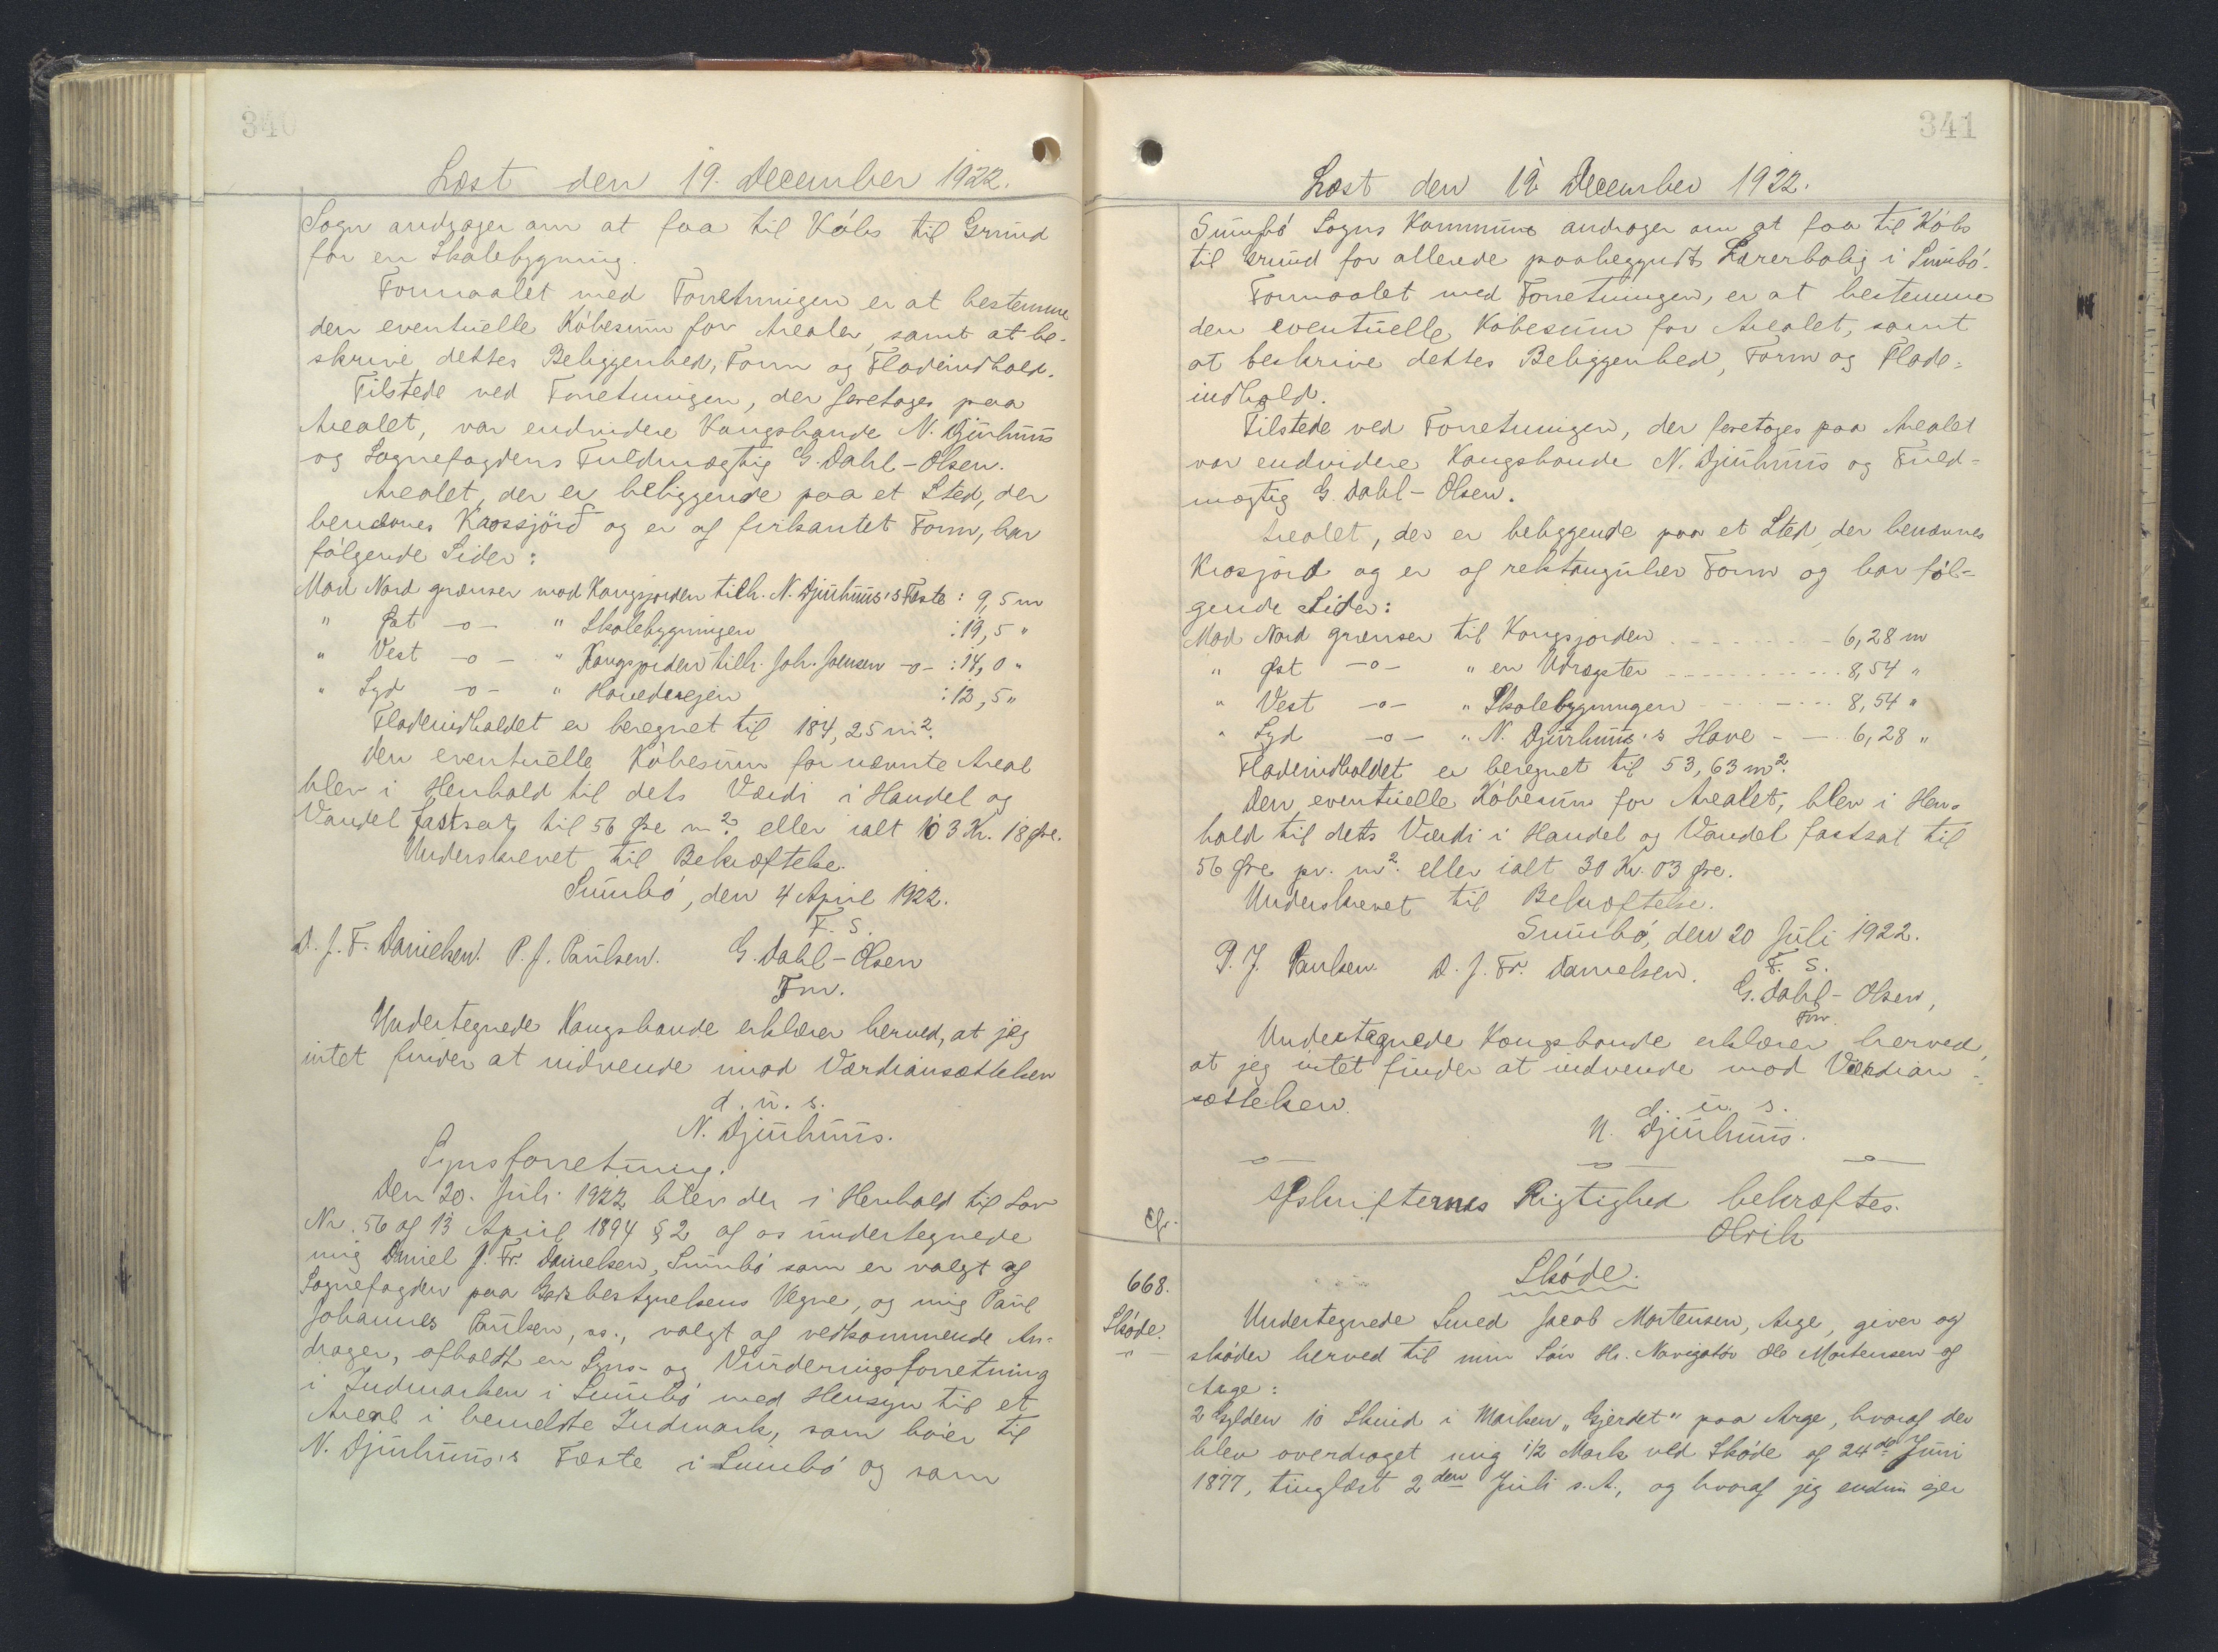 340
Læst den 19. December 1922.
Sogn andrager om at faa til Købs til Grund
for en Skolebygning.
Formaalet med Forretningen er at bestemme
den eventuelle Købesum for Arealer, samt at be-
skrive dettes Beliggenhed, Form og Fladeindhold.
Tilstede ved Forretningen, der foretages paa
Arealet, var endvidere Kongsbonde N. Djurhuus
og Sognefogdens Fuldmægtig G. Dahl-Olsen.
Arealet, der er beliggende paa et Sted, der
benævnes Krossjörð og er af firkantet Form, har
følgende Sider:
Mod Nord grænser mod Kongsjorden tilh. N. Djurhuus's Fæste: 9,5 m
" Øst -o- " Skolebygningen : 19,5 "
" Vest -o- " Kongsjorden tilh. Joh. Joensen -o- : 14,0 "
" Syd -o- " Hovedvejen : 12,5 "
Fladeindholdet er beregnet til 184,25 m².
Den eventuelle Købesum for nævnte Areal
blev i Henhold til dets Værdi i Handel og
Vandel fastsat til 56 Øre m² eller ialt 103 Kr. 18 Øre.
Underskrevet til Bekræftelse.
Sumbø, den 4 April 1922.
F. S.
D. J. F. Danielsen. P. J. Paulsen. G. Dahl-Olsen
Fm.
Undertegnede Kongsbonde erklærer herved, at jeg
intet finder at indvende imod Værdiansættelsen
d. u. s.
N. Djurhuus.
Synsforretning.
Den 20. Juli 1922 blev der i Henhold til Lov
Nr. 56 af 13 April 1894 § 2 af os undertegnede
mig Daniel J. Fr. Danielsen, Sumbø som er valgt af
Sognefogden paa Godsbestyrelsens Vegne, og mig Paul
Johannes Paulsen, ss., valgt af vedkommende An-
drager, afholdt en Syns- og Vurderingsforretning
i Indmarken i Sumbø med Hensyn til et
Areal i bemeldte Indmark, som hører til
N. Djurhuus's Fæste i Sumbø og som
341
Læst den 19 December 1922.
Sumbø Sogns Kommune andrager om at faa til Købs
til Grund for allerede paabegyndt Lærerbolig i Sumbø.
Formaalet med Forretningen, er at bestemme
den eventuelle Købesum for Arealet, samt
at beskrive dettes Beliggenhed, Form og Flade-
indhold.
Tilstede ved Forretningen, der foretages paa Arealet
var endvidere Kongsbonde N. Djurhuus og Fuld-
mægtig G. Dahl-Olsen.
Arealet, der er beliggende paa et Sted, der benævnes
Krosjord og er af rektangulær Form og har føl-
gende Sider:
Mod Nord grænser til Kongsjorden 6,28 m
" Øst -o- " en Udrøgster 8,54 "
" Vest -o- " Skolebygningen 8,54 "
" Syd -o- " N. Djurhuus's Have 6,28 "
Fladeindholdet er beregnet til 53,63 m².
Den eventuelle Købesum for Arealet, blev i Hen-
hold til dets Værdi i Handel og Vandel fastsat til
56 Øre pr. m² eller ialt 30 Kr. 03 Øre.
Underskrevet til Bekræftelse.
Sumbø, den 20 Juli 1922.
F. S.
P. J. Paulsen. D. J. Fr. Danielsen. G. Dahl-Olsen,
Fm.
Undertegnede Kongsbonde erklærer herved,
at jeg intet finder at indvende mod Værdian-
sættelsen.
d. u. s.
N. Djurhuus.
-o- -o- -o-
Afskrifternes Rigtighed bekræftes.
Cfr.
Olrik
Skøde.
668.
Skøde.
Undertegnede Smed Jacob Mortensen, Arge, giver og
skøder herved til min Søn Hr. Navigatør Ole Mortensen af
Arge:
2 Gylden 10 Skind i Marken "Gjerdet" paa Arge, hvoraf der
blev overdraget mig 1/2 Mark ved Skøde af 24de Juni
1877, tinglæst 2den Juli s. A., og hvoraf jeg endnu ejer